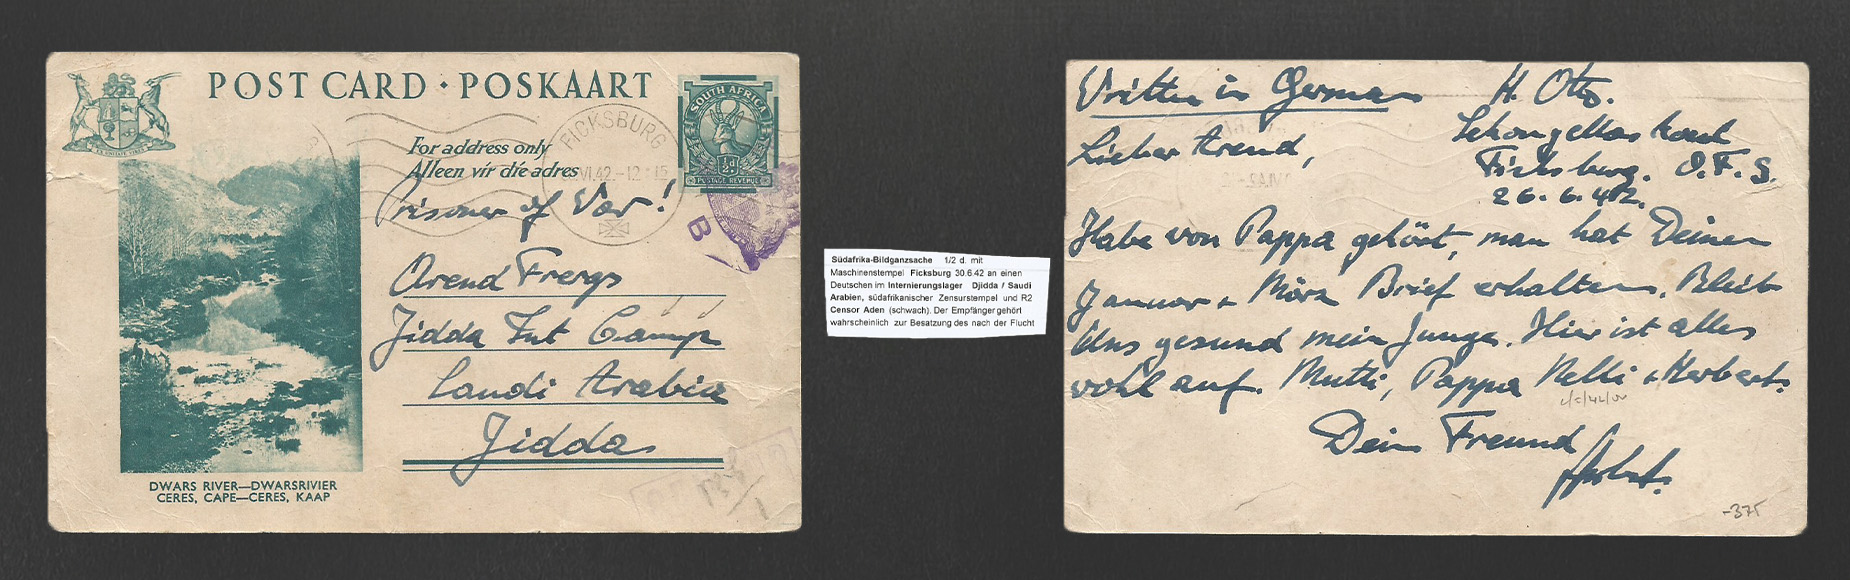 POST CARD · POSKAART
SOUTH AFRICA
½d
POSTAGE REVENUE
FICKSBURG
VI.42.-12 15
For address only
Alleen vir die adres
Prisoner of War!
B
Arend Frergs
Jidda Int Camp
Saudi Arabia
Jidda
DWARS RIVER—DWARSRIVIER
CERES, CAPE—CERES, KAAP
Südafrika-Bildganzsache 1/2 d. mit
Maschinenstempel Ficksburg 30.6.42 an einen
Deutschen im Internierungslager Djidda / Saudi
Arabien, südafrikanischer Zensurstempel und R2
Censor Aden (schwach). Der Empfänger gehört
wahrscheinlich zur Besatzung des nach der Flucht
Written in German
H. Otto.
Ficksburg. O.F.S.
26.6.42.
Lieber Arend,
Habe von Pappa gehört, man hat Deinen
Januar + März Brief erhalten. Bleib
Uns gesund mein Junge. Hier ist alles
wohl auf. Mutti, Pappa Nelli + Herbert.
Dein Freund
-375